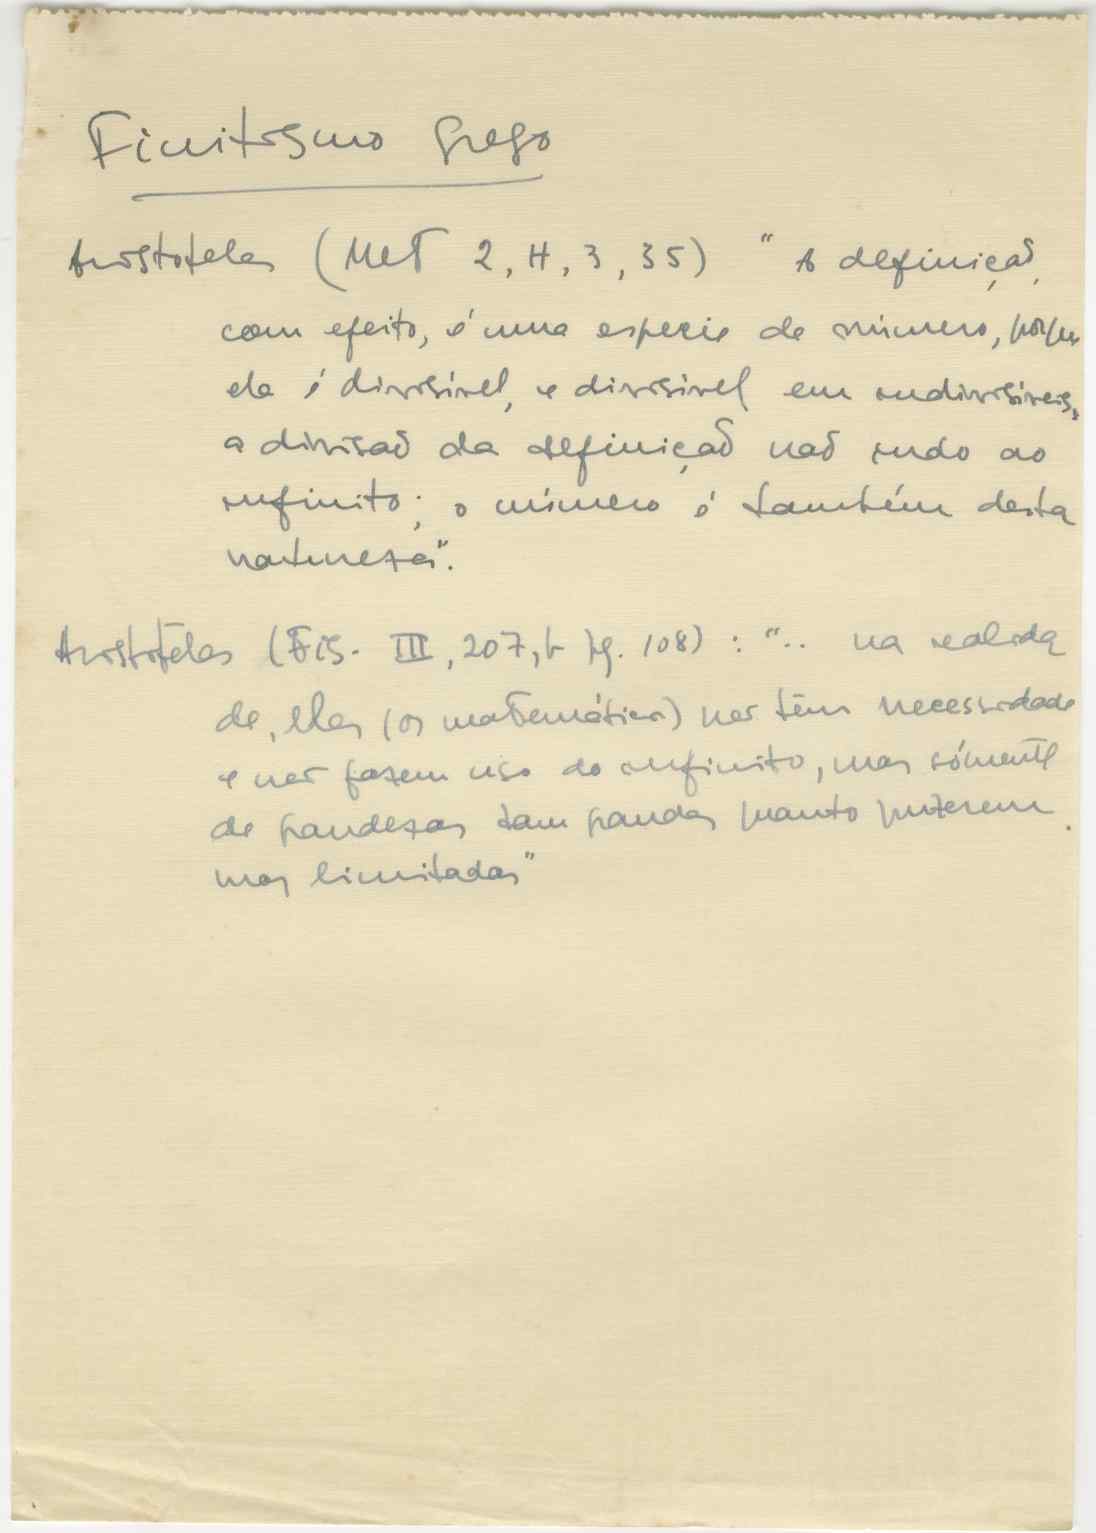 Finitismo grego
Aristoteles (Met 2, H, 3, 35) "A definição,
com efeito, é uma especie de número, porque
ela é divisível, e divisível em indivisíveis,
a divisão da definição não indo ao
infinito; o número é também desta
natureza".
Aristóteles (Fís. III, 207, b pg. 108) : ".. na realida
de, eles (os matemáticos) não têm necessidade
e não fazem uso do infinito, mas sómente
de grandezas tam grandes quanto quizerem
mas limitadas"